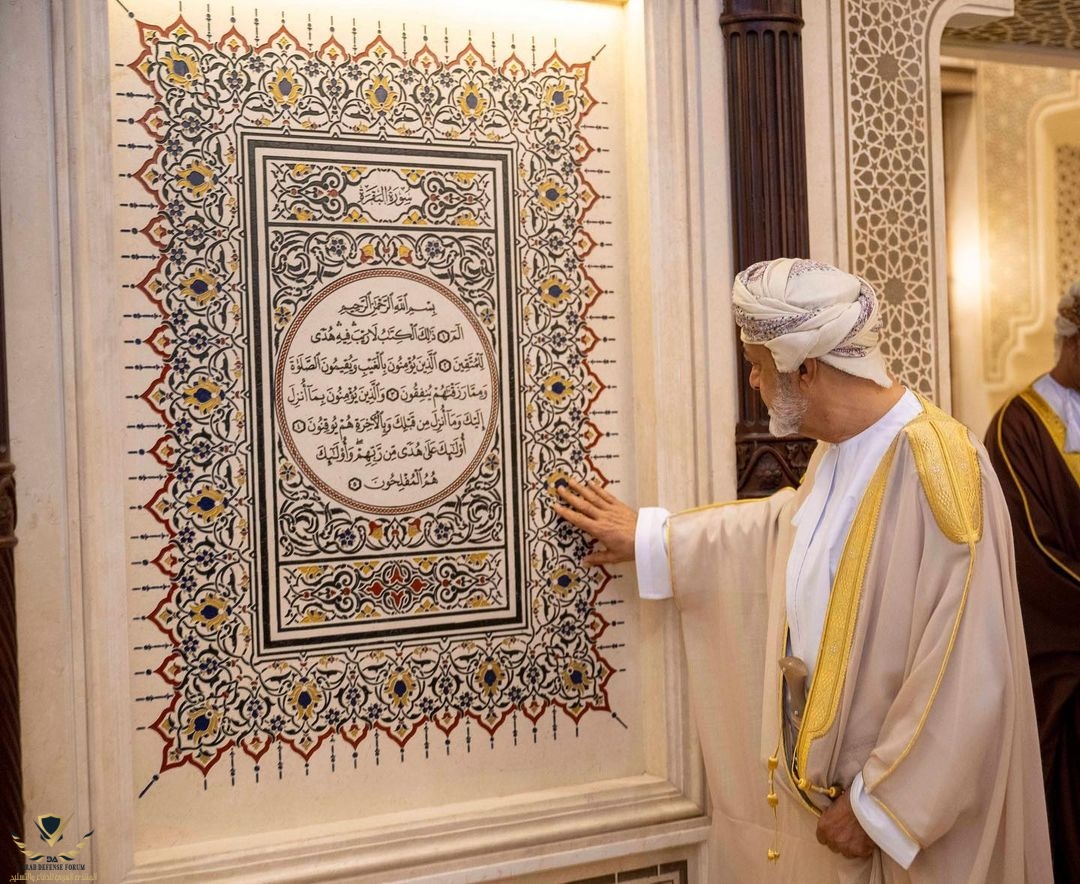 سُورَةُ البَقَرَة
بِسْمِ اللَّهِ الرَّحْمَٰنِ الرَّحِيمِ
الٓمٓ ١ ذَٰلِكَ الْكِتَٰبُ لَا رَيْبَ فِيهِ هُدًى
لِلْمُتَّقِينَ ٢ الَّذِينَ يُؤْمِنُونَ بِالْغَيْبِ وَيُقِيمُونَ الصَّلَوٰةَ
وَمِمَّا رَزَقْنَٰهُمْ يُنفِقُونَ ٣ وَالَّذِينَ يُؤْمِنُونَ بِمَآ أُنزِلَ
إِلَيْكَ وَمَآ أُنزِلَ مِن قَبْلِكَ وَبِالْآخِرَةِ هُمْ يُوقِنُونَ ٤
أُو۟لَٰٓئِكَ عَلَىٰ هُدًى مِّن رَّبِّهِمْ ۖ وَأُو۟لَٰٓئِكَ
هُمُ الْمُفْلِحُونَ ٥
DA
ARAB DEFENSE FORUM
المنتدى العربي للدفاع والتسليح